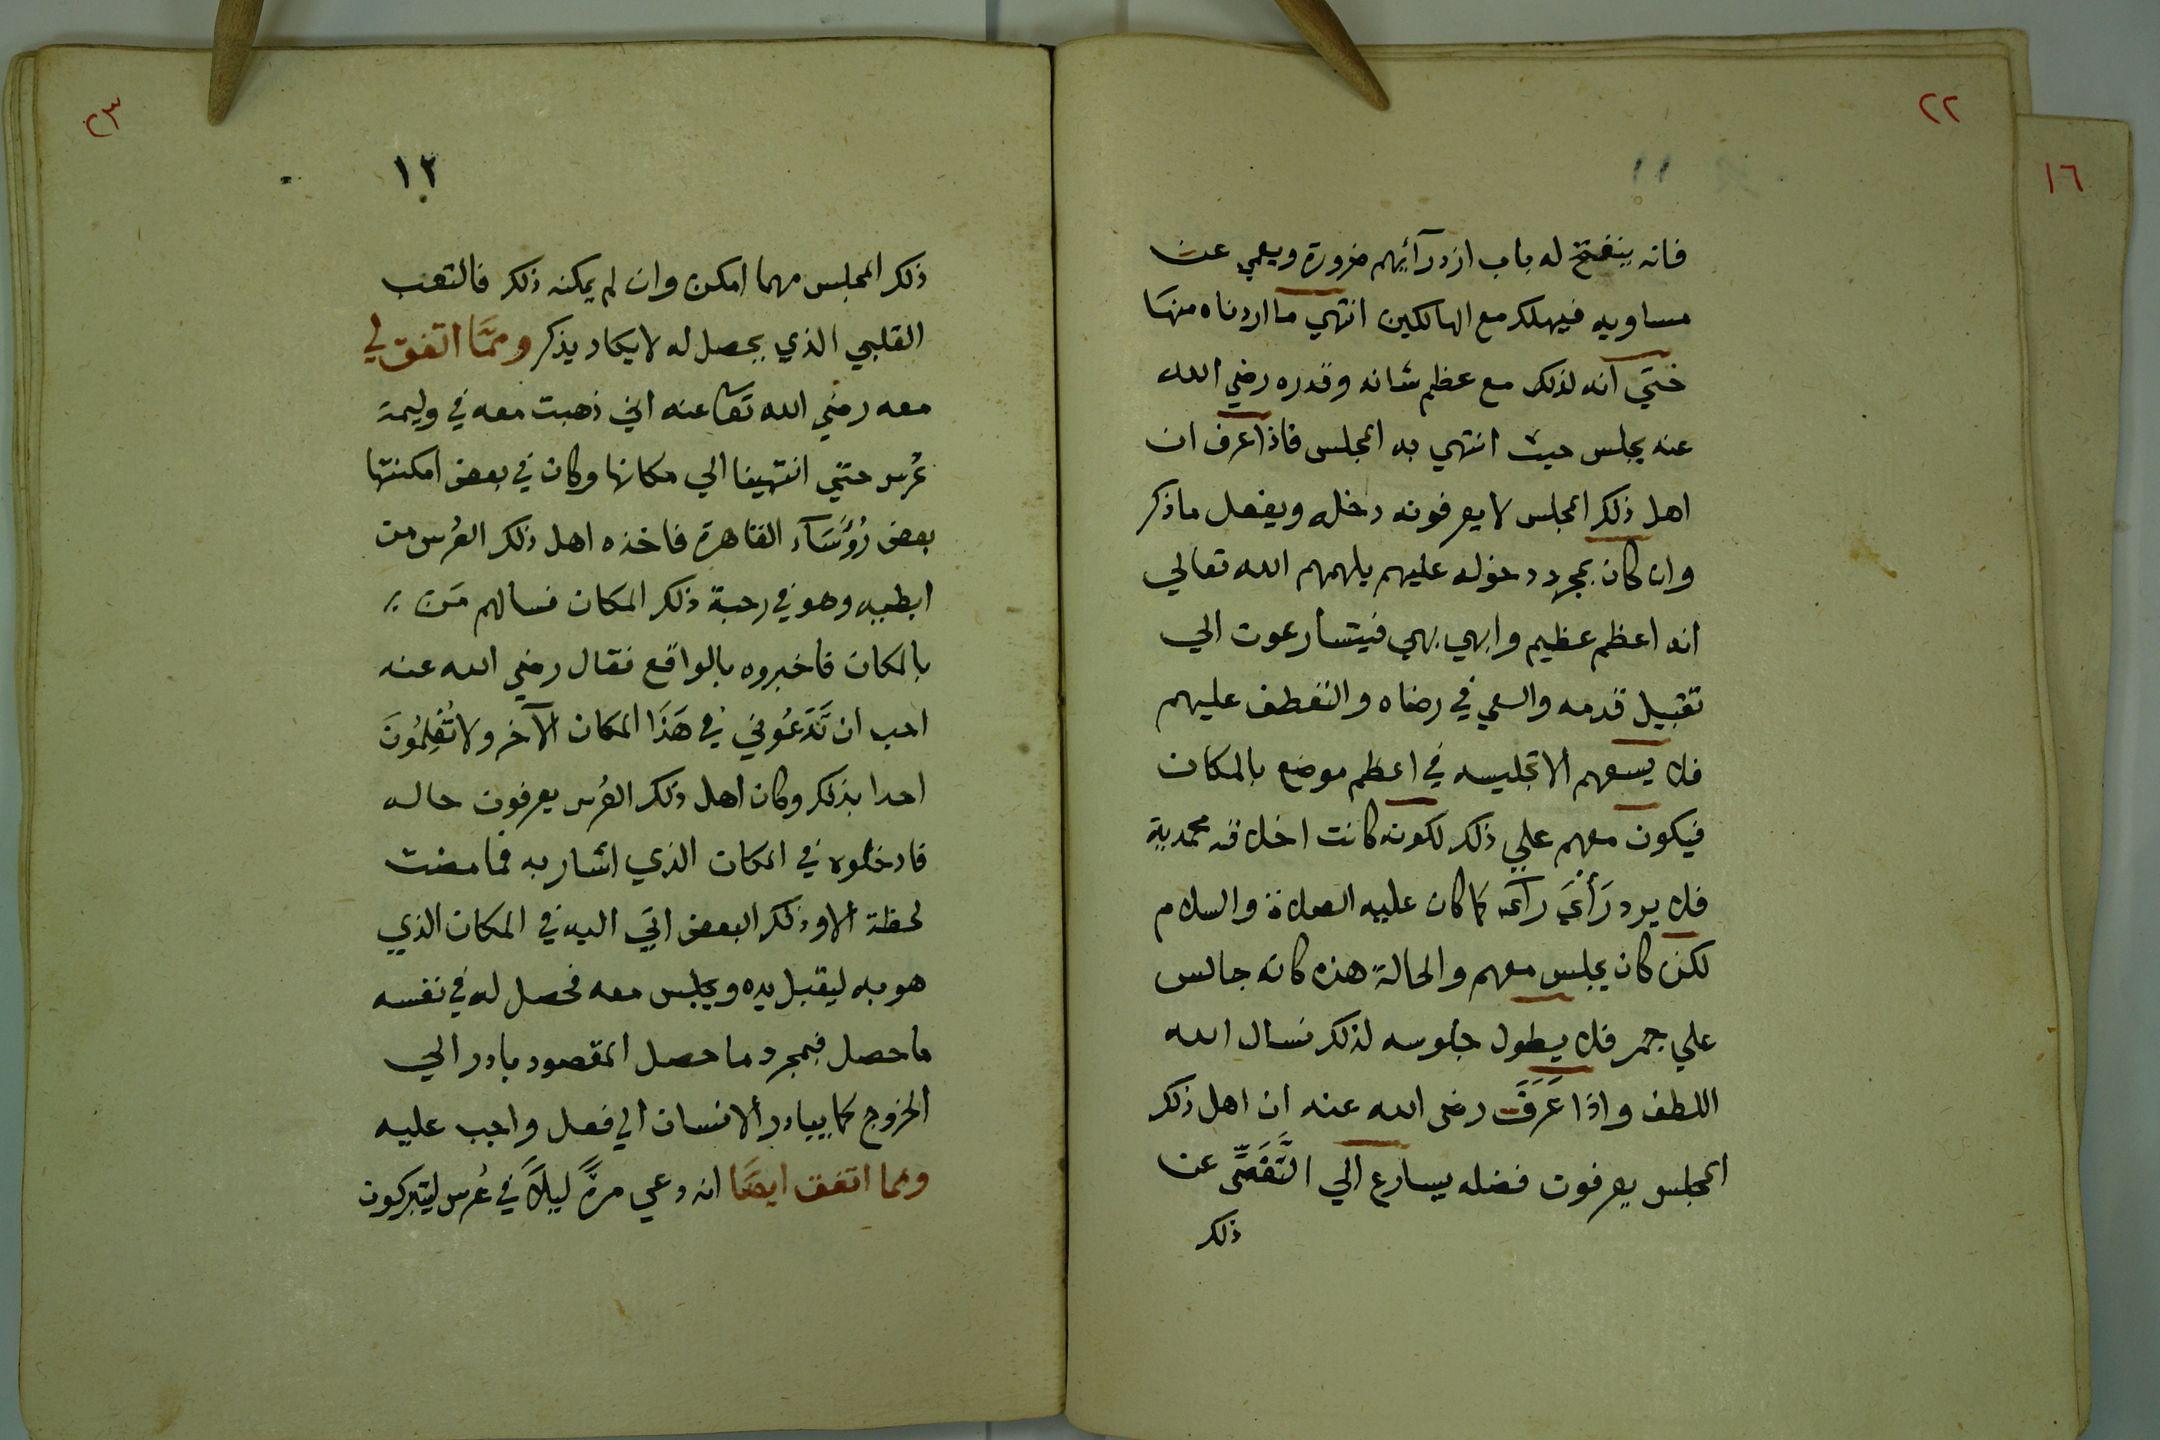 ٢٢
١٦
١١
فانه ينفتح له باب ازدرآئيهم ضرورة ويعمي عن
مساويه فيهلك مع الهالكين انتهي ما اردناه منها
حتي انه لذلك مع عظم شانه وقدره رضي الله
عنه يجلس حيث انتهي به المجلس فاذا عرف ان
اهل ذلك المجلس لا يعرفونه دخله ويفعل ما ذكر
وان كان بمجرد دخوله عليهم يلهمهم الله تعالي
انه اعظم عظيم وابهي بهي فيتسارعون الي
تقبيل قدمه والسعي في رضاه والتعطف عليهم
فلا يسعهم الا تجليسه في اعظم موضع بالمكان
فيكون معهم علي ذلك لكونه كانت اخلاقه محمدية
فلا يرد رَأْيَ رآئه كما كان عليه الصلاة والسلام
لكن كان يجلس معهم والحالة هذه كانه جالس
علي جمر فلا يطول جلوسه لذلك نسال الله
اللطف واذا عَرَفَ رضي الله عنه ان اهل ذلك
المجلس يعرفون فضله يسارع الي التَّفَصِّى عن
ذلك
٢٣
١٢
ذلك المجلس مهما امكن وان لم يمكنه ذلك فالتعب
القلبي الذي يحصل له لا يكاد يذكر وممَّا اتفق لي
معه رضي الله تعا عنه اني ذهبت معه في وليمة
عُرس حتي انتهينا الي مكانها وكان في بعض امكنتها
بعض رُؤَسَآء القاهرة فاخذه اهل ذلك العُرس من
ابطيه وهو في رحبة ذلك المكان فسالهم مَن
بالمكان فاخبروه بالواقع فقال رضي الله عنه
احب ان تَدَعُوني في هَذَا المكان الآخر ولا تُعْلِمُونَ
احدا بذلك وكان اهل ذلك العُرس يعرفون حاله
فادخلوه في المكان الذي اشار به فما مضت
لحظة الا وذلك البعض اتي اليه في المكان الذي
هو به ليقبل يده ويجلس معه فحصل له في نفسه
ما حصل فبمجرد ما حصل المقصود بادر الي
الخروج كما يبادر الانسان الي فعل واجب عليه
ومما اتفق ايضًا انه دعي مرةً ليلًا في عُرس ليتبركون